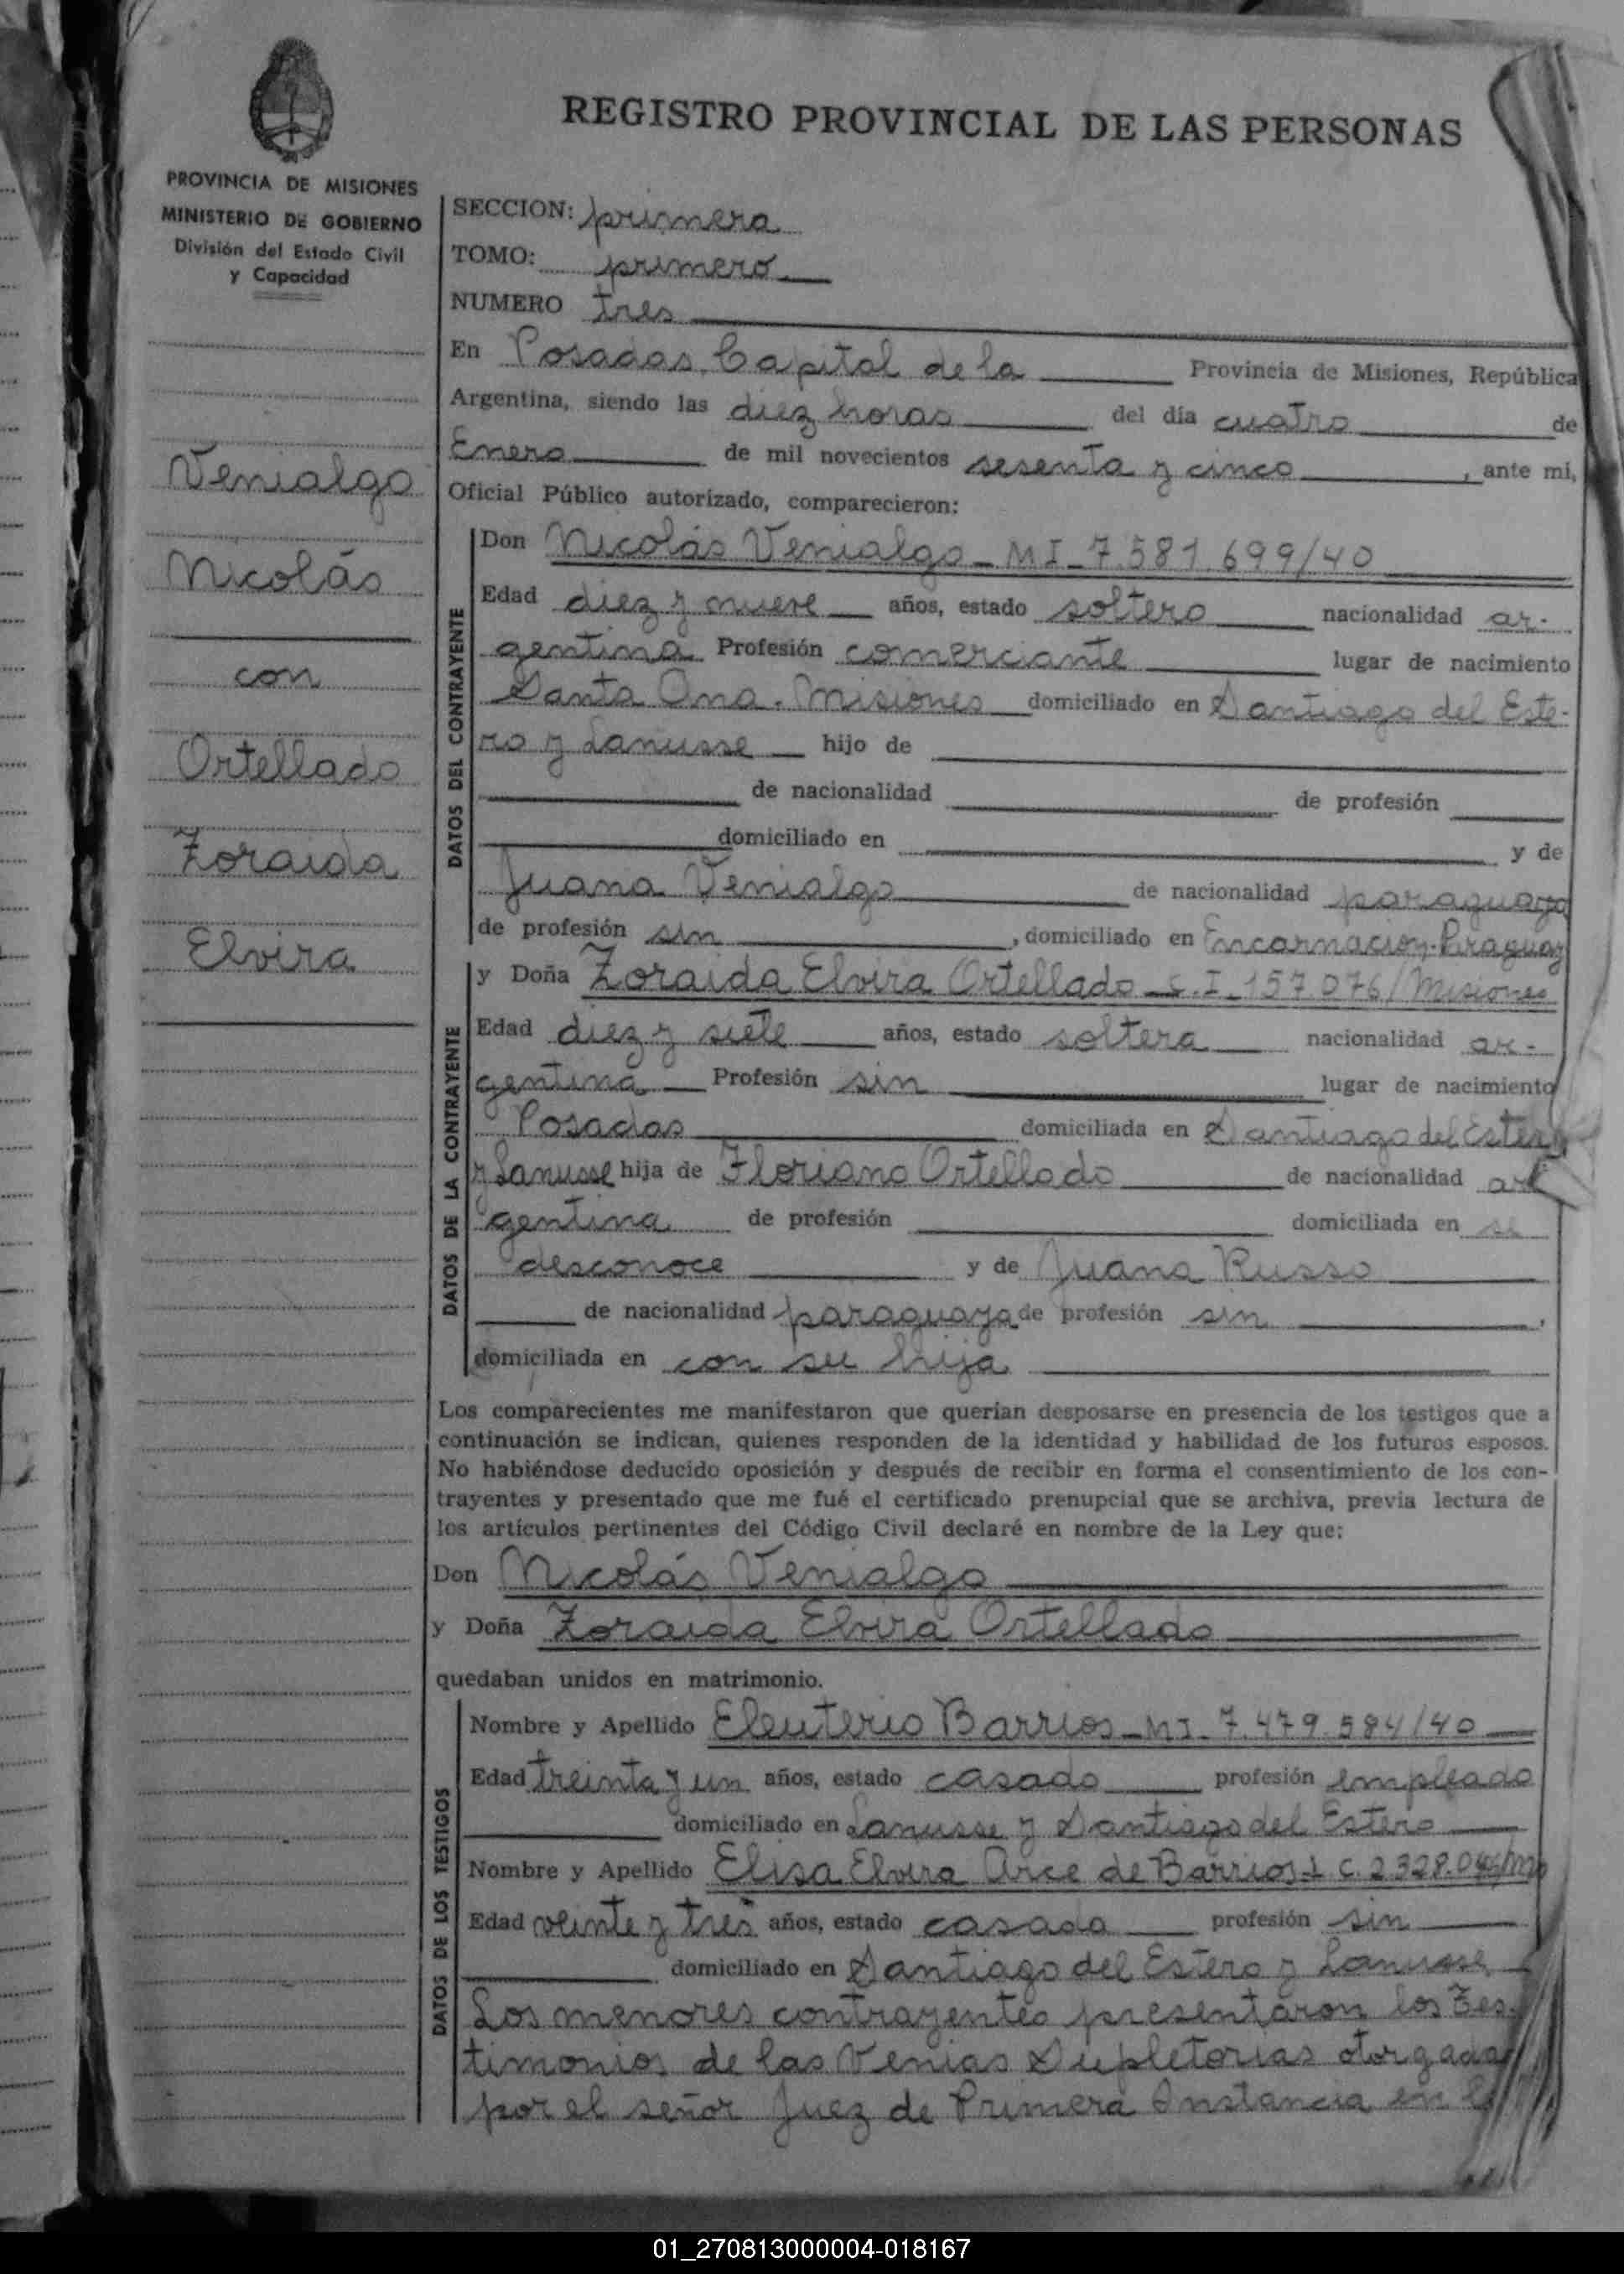 REGISTRO PROVINCIAL DE LAS PERSONAS
PROVINCIA DE MISIONES
MINISTERIO DE GOBIERNO
División del Estado Civil
y Capacidad
Venialgo
Nicolás
con
Ortellado
Zoraida
Elvira
SECCION: primera
TOMO: primero
NUMERO tres
En Posadas, Capital de la Provincia de Misiones, República
Argentina, siendo las diez horas del día cuatro de
Enero de mil novecientos sesenta y cinco, ante mi,
Oficial Público autorizado, comparecieron:
DATOS DEL CONTRAYENTE
Don Nicolás Venialgo - MI - 7.581.699/40
Edad diez y nueve años, estado soltero nacionalidad ar-
gentina Profesión comerciante lugar de nacimiento
Santa Ana. Misiones domiciliado en Santiago del Este-
ro y Lanusse hijo de
de nacionalidad de profesión
domiciliado en y de
Juana Venialgo de nacionalidad paraguaya
de profesión sin, domiciliado en Encarnación-Paraguay
DATOS DE LA CONTRAYENTE
y Doña Zoraida Elvira Ortellado - C.I - 157.076/Misiones
Edad diez y siete años, estado soltera nacionalidad ar-
gentina Profesión sin lugar de nacimiento
Posadas domiciliada en Santiago del Estero
y Lanusse hija de Floriano Ortellado de nacionalidad ar
gentina de profesión domiciliada en se
desconoce y de Juana Russo
de nacionalidad paraguaya de profesión sin,
domiciliada en con su hija
Los comparecientes me manifestaron que querían desposarse en presencia de los testigos que a
continuación se indican, quienes responden de la identidad y habilidad de los futuros esposos.
No habiéndose deducido oposición y después de recibir en forma el consentimiento de los con-
trayentes y presentado que me fué el certificado prenupcial que se archiva, previa lectura de
los artículos pertinentes del Código Civil declaré en nombre de la Ley que:
Don Nicolás Venialgo
y Doña Zoraida Elvira Ortellado
quedaban unidos en matrimonio.
DATOS DE LOS TESTIGOS
Nombre y Apellido Eleuterio Barrios - MI - 7.479.584/40
Edad treinta y un años, estado casado profesión empleado
domiciliado en Lanusse y Santiago del Estero
Nombre y Apellido Elisa Elvira Arce de Barrios - L C. 2.328.
Edad veinte y tres años, estado casada profesión sin
domiciliado en Santiago del Estero y Lanusse
Los menores contrayentes presentaron los Tes-
timonios de las Venias Supletorias otorgada
por el señor Juez de Primera Instancia en l
01_270813000004-018167